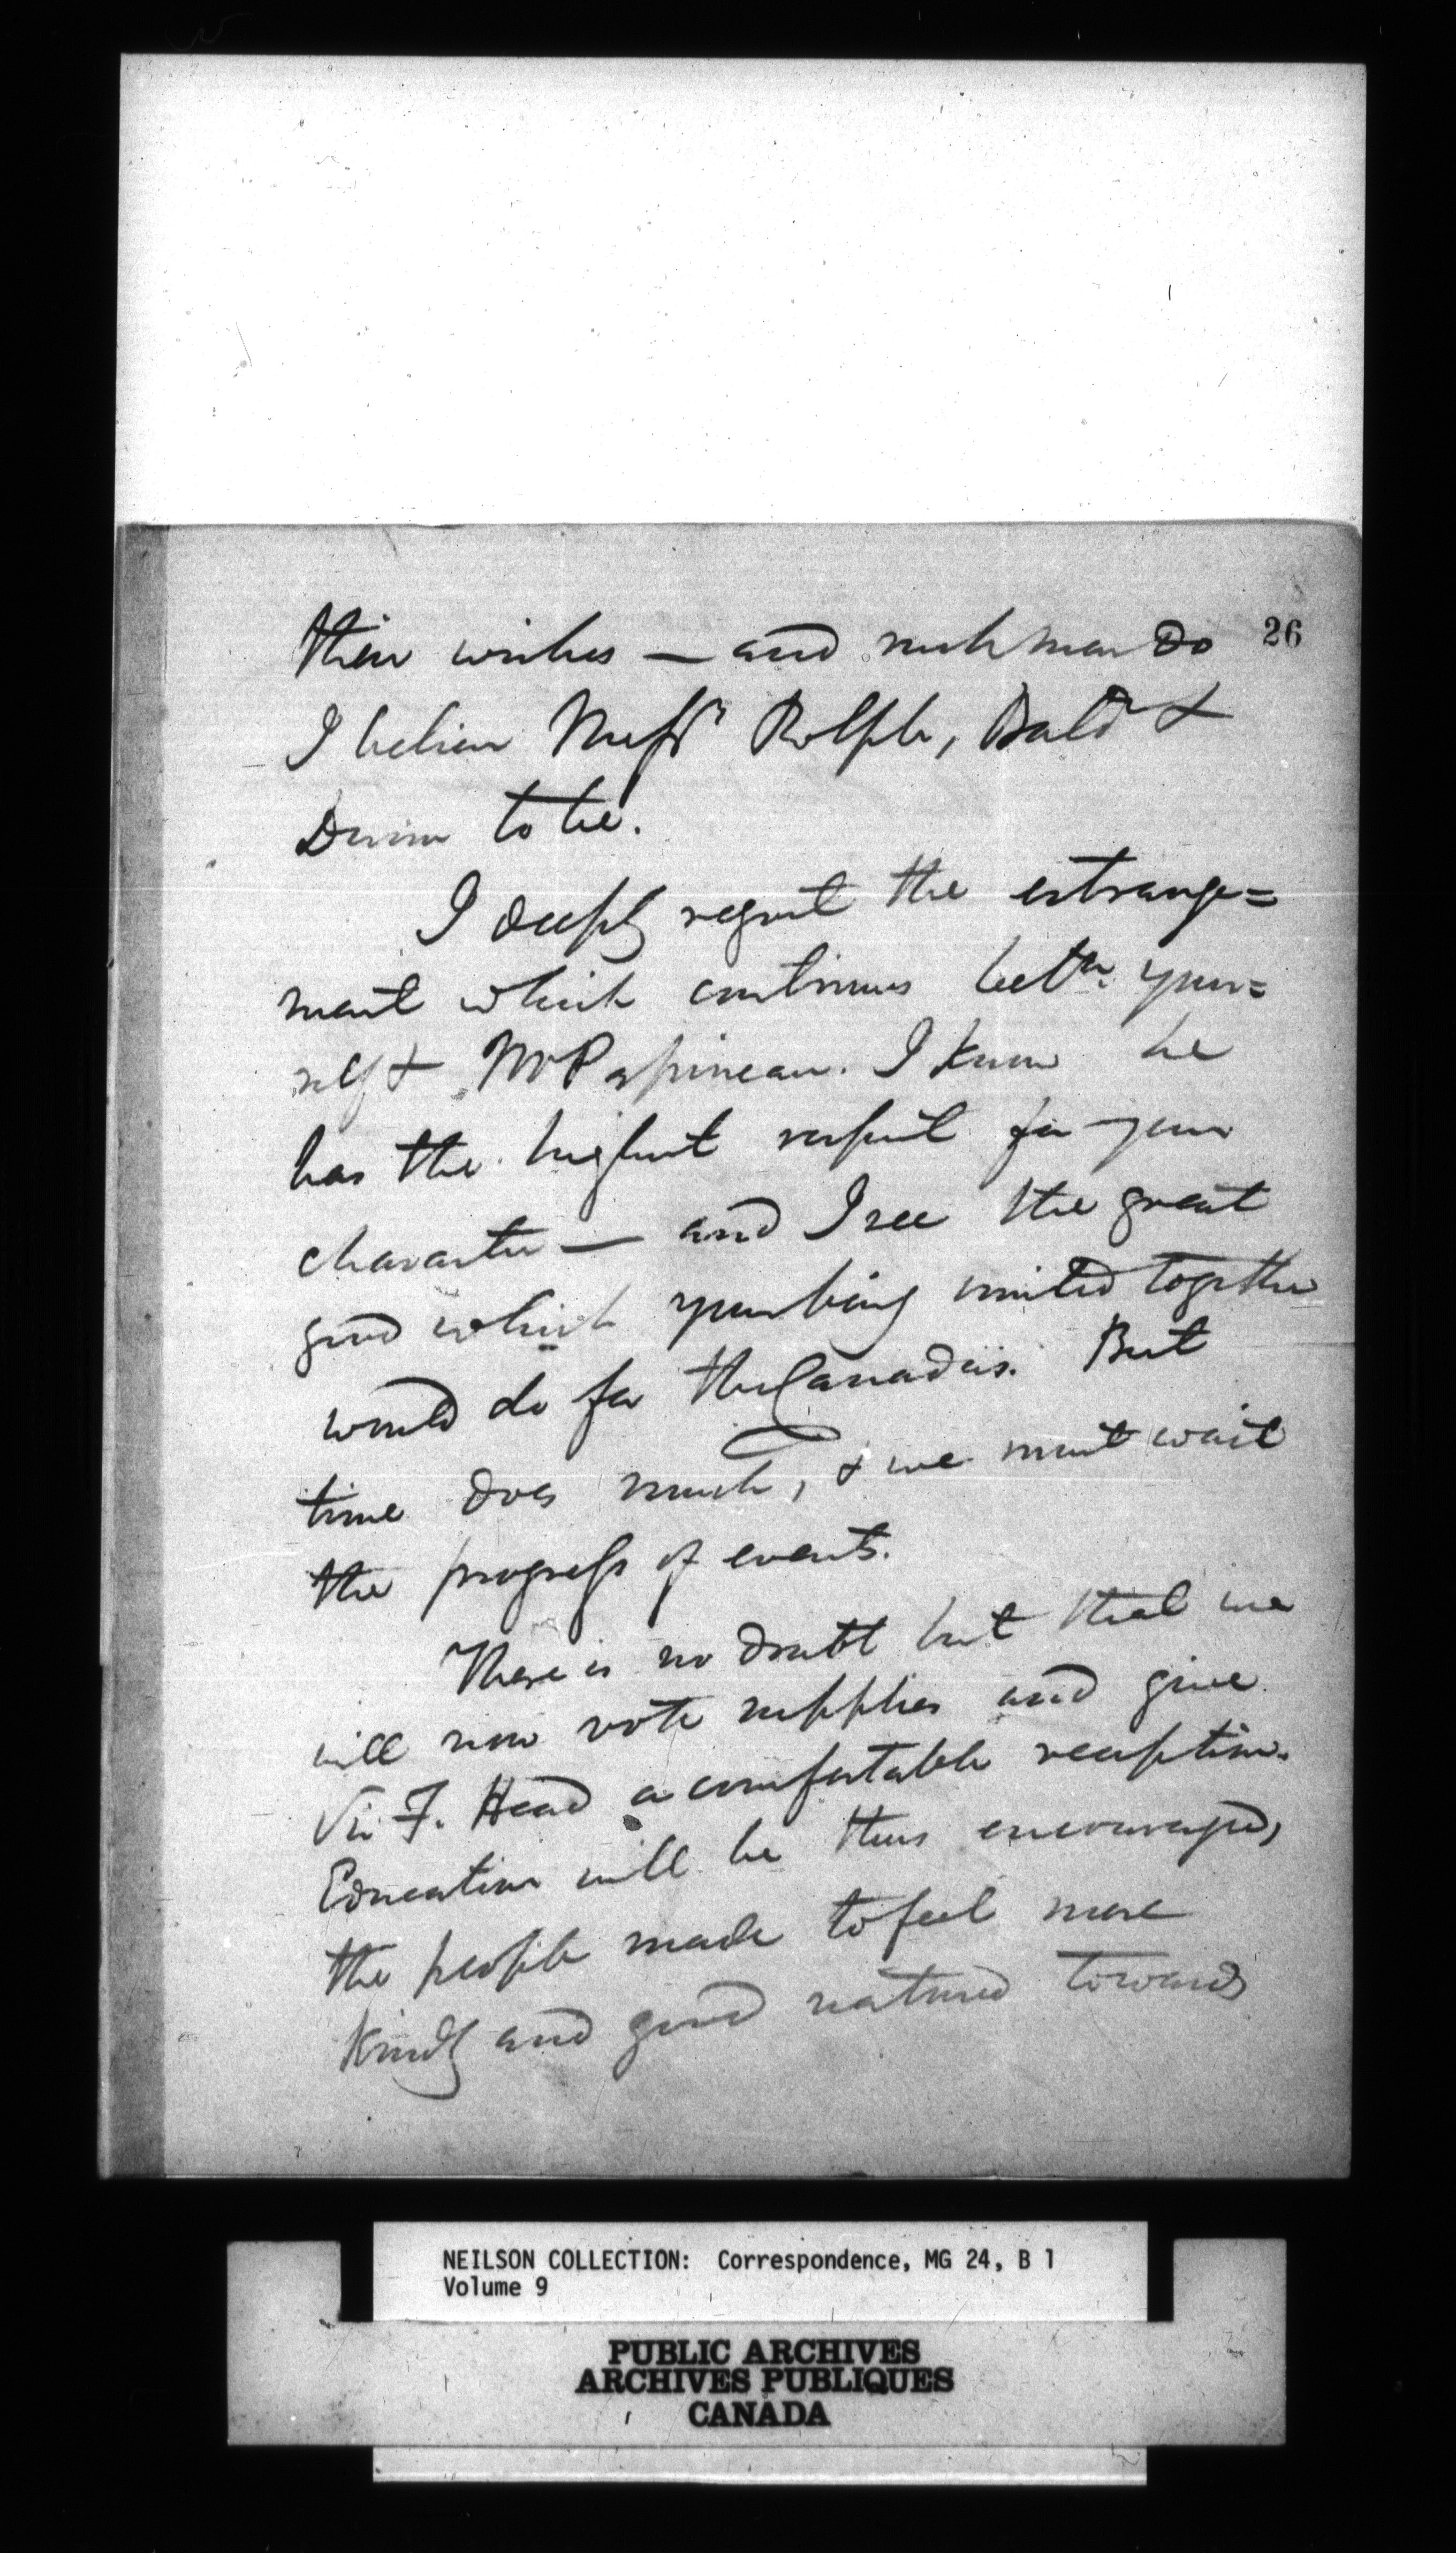 26
their wishes — and such men do
I believe Messrs Rolph, Baldn &
Dunn to be.
I deeply regret the estrange=
ment which continues betn. your=
self & Mr Papineau. I know he
has the highest respect for your
character — and I see the great
good which your being united together
would do for the Canadas. But
time does much, & we must wait
the progress of events.
There is no doubt but that we
will now vote supplies and give
Sir F. Head a comfortable reception.
Education will be thus encouraged,
the people made to feel more
kindly and good natured towards
NEILSON COLLECTION: Correspondence, MG 24, B 1
Volume 9
PUBLIC ARCHIVES
ARCHIVES PUBLIQUES
CANADA